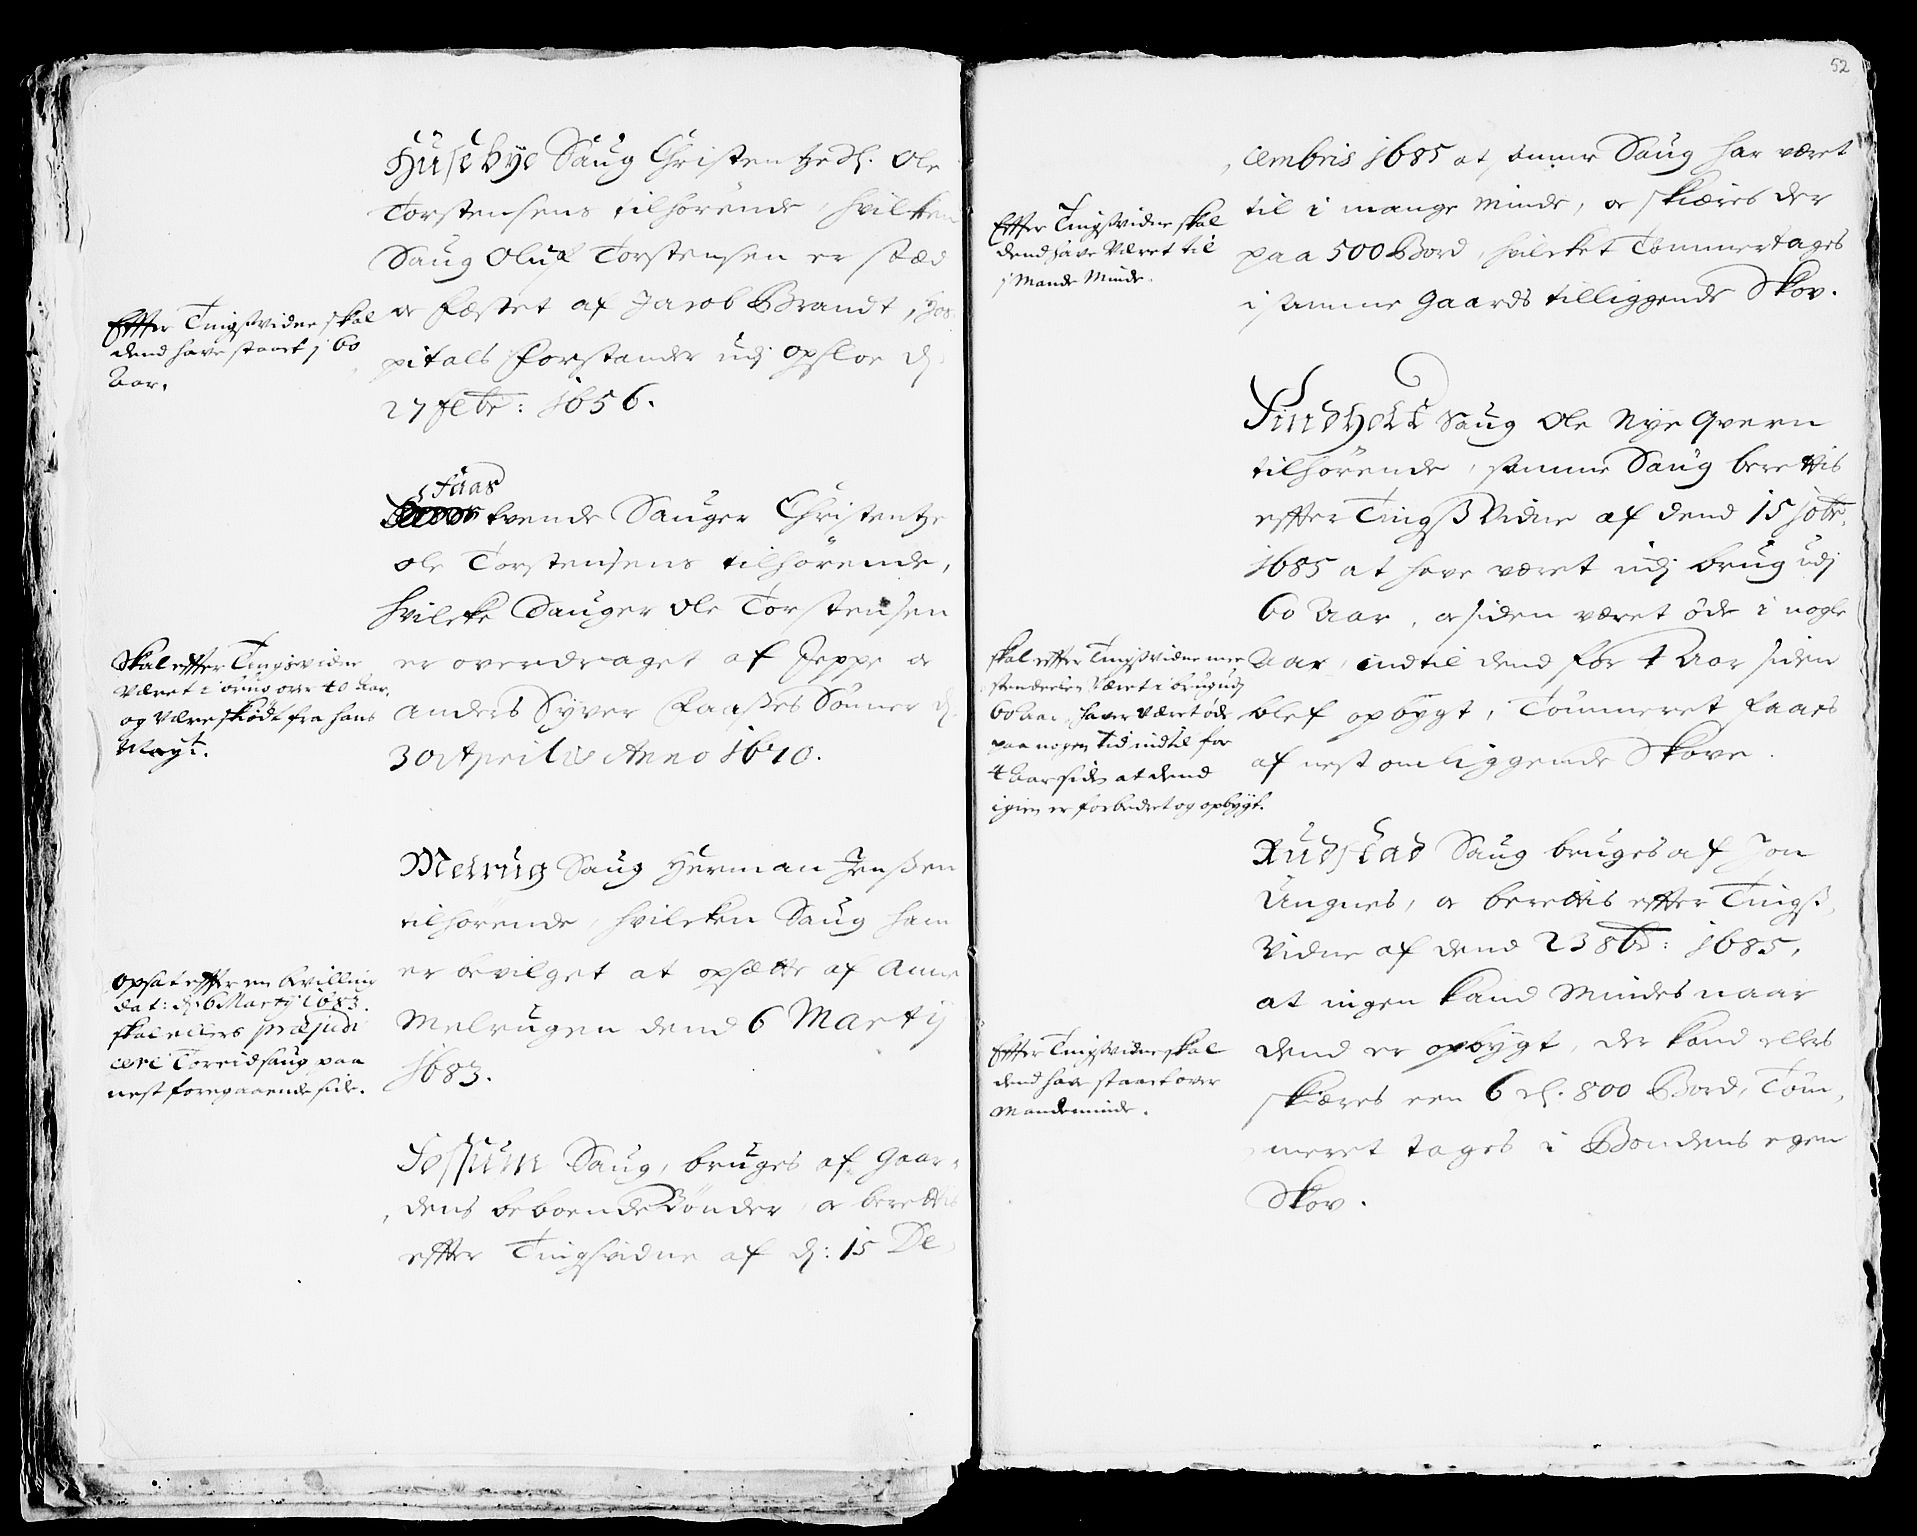 Husebye Saug Christentze Sl. Ole
Torstensens tilhørende, hvilcken
Saug Oluf Torstensen er stæd
oc fæstet af Jacob Brandt, Hos-
pitals Forstander udj Opsloe d.
27 Febr: 1656.
Effter Tingsvidne skal
dend have staaet j 60
Aar.
Faas
tvende Sauger Christentze
Ole Torstensens tilhørende,
hvilcke Sauger Ole Torstensen
er overdraget af Jeppe oc
Anders Syver Faasses Sønner d.
30 Aprilis Anno 1670.
Skal effter Tingsvidne
været i brug over 40 Aar,
og være skiødt fra hans
Mayt.
Melrug Saug Herman Jenssen
tilhørende, hvilcken Saug ham
er bevilget at opsætte af Anne
Melrugen dend 6 Martij
1683.
Opsat effter en bevilling
dat: d. 6 Martij 1683.
skal ellers præjudi
cere Toreid saug paa
nest foregaaende side.
Fossum Saug, bruges af Gaar-
dens beboende Bønder, oc berettis
effter Tingsvidne af d: 15 De-
52
cembris 1685 at samme Saug har været
til i mange Minde, oc skiæres der
paa 500 Bord, hvilcket Tømmer tages
i samme Gaards tilliggende Skov.
Effter Tingsvidne skal
dend have Været til
j Mande Minde.
Findholt Saug Ole Nye Qvern
tilhørende, samme Saug berettis
effter Tingss Vidne af dend 15 Xbr.
1685 at have været udj brug udj
60 Aar, oc siden været øde i nogle
Aar, indtil dend for 4 Aar siden
blef opbygt, Tømmeret Faaes
af nest omliggende Skove.
skal effter Tingsvidne mee-
stendeelen Været i brug udj
60 Aar, haver Været øde
paa nogen Tid indtil for
4 Aar siden at dend
igien er forbedret og opbygt.
Rudstad Saug bruges af Jon
Ungnes, oc berettis effter Tingss
Vidne af dend 23 8br: 1685,
at ingen kand Mindes naar
dend er opbygt, der kand ellers
skiæres een 6 à 800 Bord, Tøm-
meret tages i Bondens egen
Skov.
Effter Tingsvidne skal
dend have staaet over
Mandeminde.